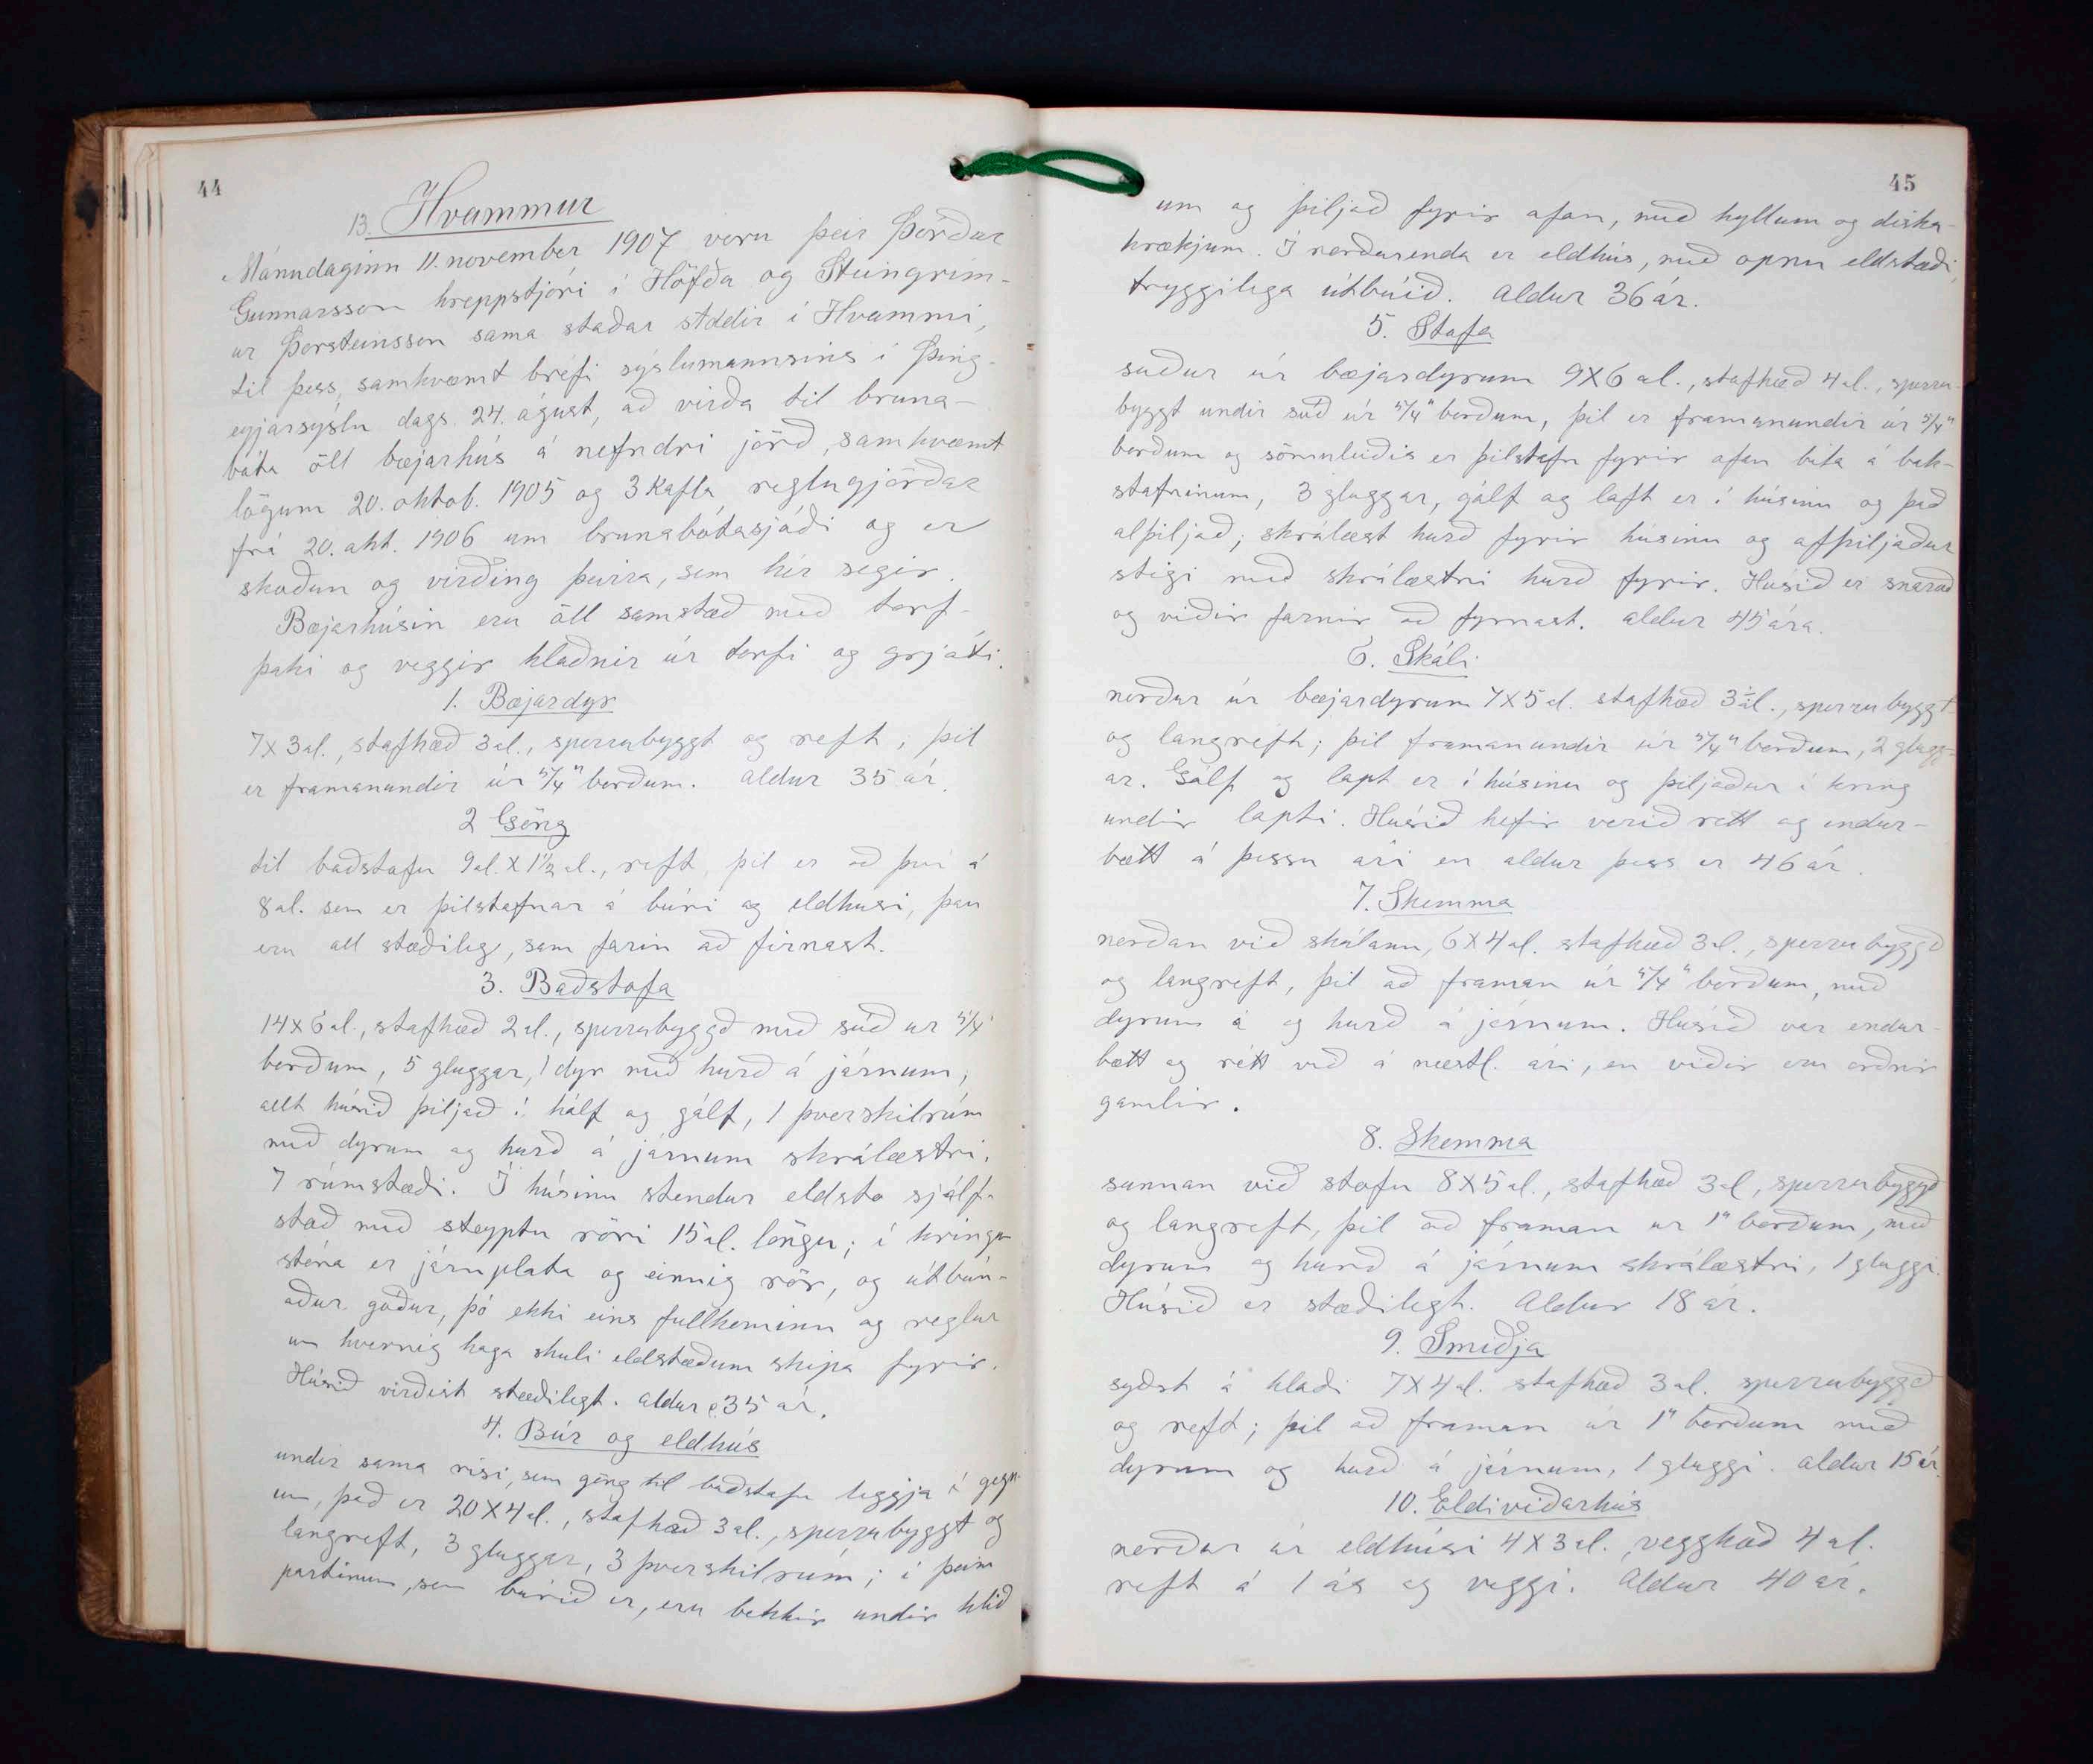 44
13. Hvammur
Mánudaginn 11. november 1907 voru þeir Þórður
Gunnarsson hreppstjóri í Höfða og Steingrím-
ur Þorsteinsson sama staðar stddir í Hvammi,
til þess, samkvæmt bréfi sýslumannsins í Þing-
eyjarsýslu dags. 24. ágúst, að virða til bruna-
bóta öll bæjarhús á nefndri jörð, samkvæmt
lögum 20. oktob. 1905 og 3 kafla reglugjörðar
frá 20. okt. 1906 um brunabótasjóði og er
skoðun og virðing þeirra, sem hér segir.
Bæjarhúsin eru öll samstæð með torf-
þaki og veggir hlaðnir úr torfi og grjóti.
1. Bæjardyr
7x3 al., stafhæð 3 al., sperrubyggt og reft, þil
er framanundir úr 5/4" borðum. Aldur 35 ár.
2 Göng
til baðstofu 9 al. x 1 1/2 al., reft, þil er að því á
8 al. sem er þilstafnar á búri og eldhúsi, þau
eru all stæðileg, sem farin að firnast.
3. Baðstofa
14x6 al., stafhæð 2 al., sperrubyggð með súð úr 5/4"
borðum, 5 gluggar, 1 dyr með hurð á járnum,
allt húsið þiljað í hólf og gólf, 1 þverskilrúm
með dyrum og hurð á járnum skrálæstri,
7 rúmstæði. Í húsinu stendur eldstó sjálf-
stæð með steyptu röri 15 al. löngu; í kringum
stóna er járnplata og einnig rör, og útbún-
aður góður, þó ekki eins fullkominn og reglur
um hvernig haga skuli eldstæðum skipa fyrir.
Húsið virðist stæðilegt. Aldur c. 35 ár.
4. Búr og eldhús
undir sama risi, sem göng til baðstofu leggja í gegn-
um, það er 20x4 al., stafhæð 3 al., sperrubyggt og
langreft, 3 gluggar, 3 þverskilrúm; í þeim
partinum, sem búrið er, eru bekkir undir hlið
45
um og þiljað fyrir ofan, með hyllum og diska-
krækjum. Í norðurenda er eldhús, með opnu eldstæði,
tryggilega útbúið. Aldur 36 ár.
5. Stofa
suður úr bæjardyrum 9x6 al., stafhæð 4 al., sperru-
byggt undir súð úr 5/4" borðum, þil er framanundir úr 5/4"
borðum og sömuleiðis er þilstafn fyrir ofan bita á bak-
stafninum, 3 gluggar, gólf og loft er í húsinu og það
alþiljað; skrálæst hurð fyrir húsinu og afþiljaður
stigi með skrálæstri hurð fyrir. Húsið er snarað
og viðir farnir að fyrnast. Aldur 45 ára.
6. Skáli
norður úr bæjardyrum 7x5 al. stafhæð 3 1/2 al., sperrubyggt
og langreft; þil framanundir úr 5/4" borðum, 2 glugg-
ar. Gólf og lopt er í húsinu og þiljaður í kring
undir lopti. Húsið hefir verið rett og endur-
bætt á þessu ári en aldur þess er 46 ár.
7. Skemma
norðan við skálann, 6x4 al. stafhæð 3 al., sperrubyggð
og langreft, þil að framan úr 5/4" borðum, með
dyrum á og hurð á járnum. Húsið var endur-
bætt og rétt við á næstl. ári, en viðir eru orðnir
gamlir.
8. Skemma
sunnan við stofu 8x5 al., stafhæð 3 al, sperrubyggð
og langreft, þil að framan úr 1" borðum, með
dyrum og hurð á járnum skrálæstri, 1 gluggi.
Húsið er stæðilegt. Aldur 18 ár.
9. Smiðja
syðst á hlaði 7x4 al. stafhæð 3 al. sperrubyggð
og reft; þil að framan úr 1" borðum með
dyrum og hurð á járnum, 1 gluggi. Aldur 15 ár.
10. Eldiviðarhús
norður úr eldhúsi 4x3 al., vegghæð 4 al.
reft á 1 ás og veggi. Aldur 40 ár.